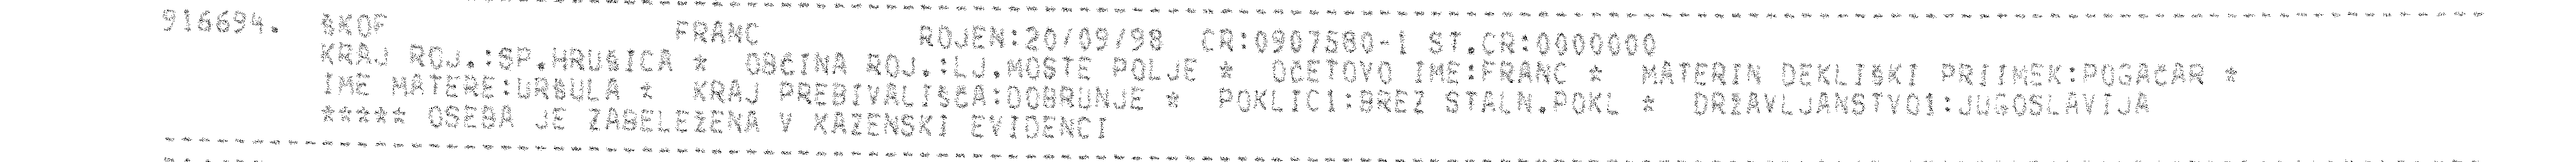 916694. ŠKOF FRANC ROJEN:20/09/98 CR:0907580-1 ST.CR:0000000
KRAJ ROJ.:SP.HRUŠICA * OBČINA ROJ.:LJ.MOSTE POLJE * OČETOVO IME:FRANC * MATERIN DEKLIŠKI PRIIMEK:POGAČAR *
IME MATERE:URŠULA * KRAJ PREBIVALIŠČA:DOBRUNJE * POKLIC1:BREZ STALN.POKL * DRŽAVLJANSTVO1:JUGOSLAVIJA
***** OSEBA JE ZABELEŽENA V KAZENSKI EVIDENCI